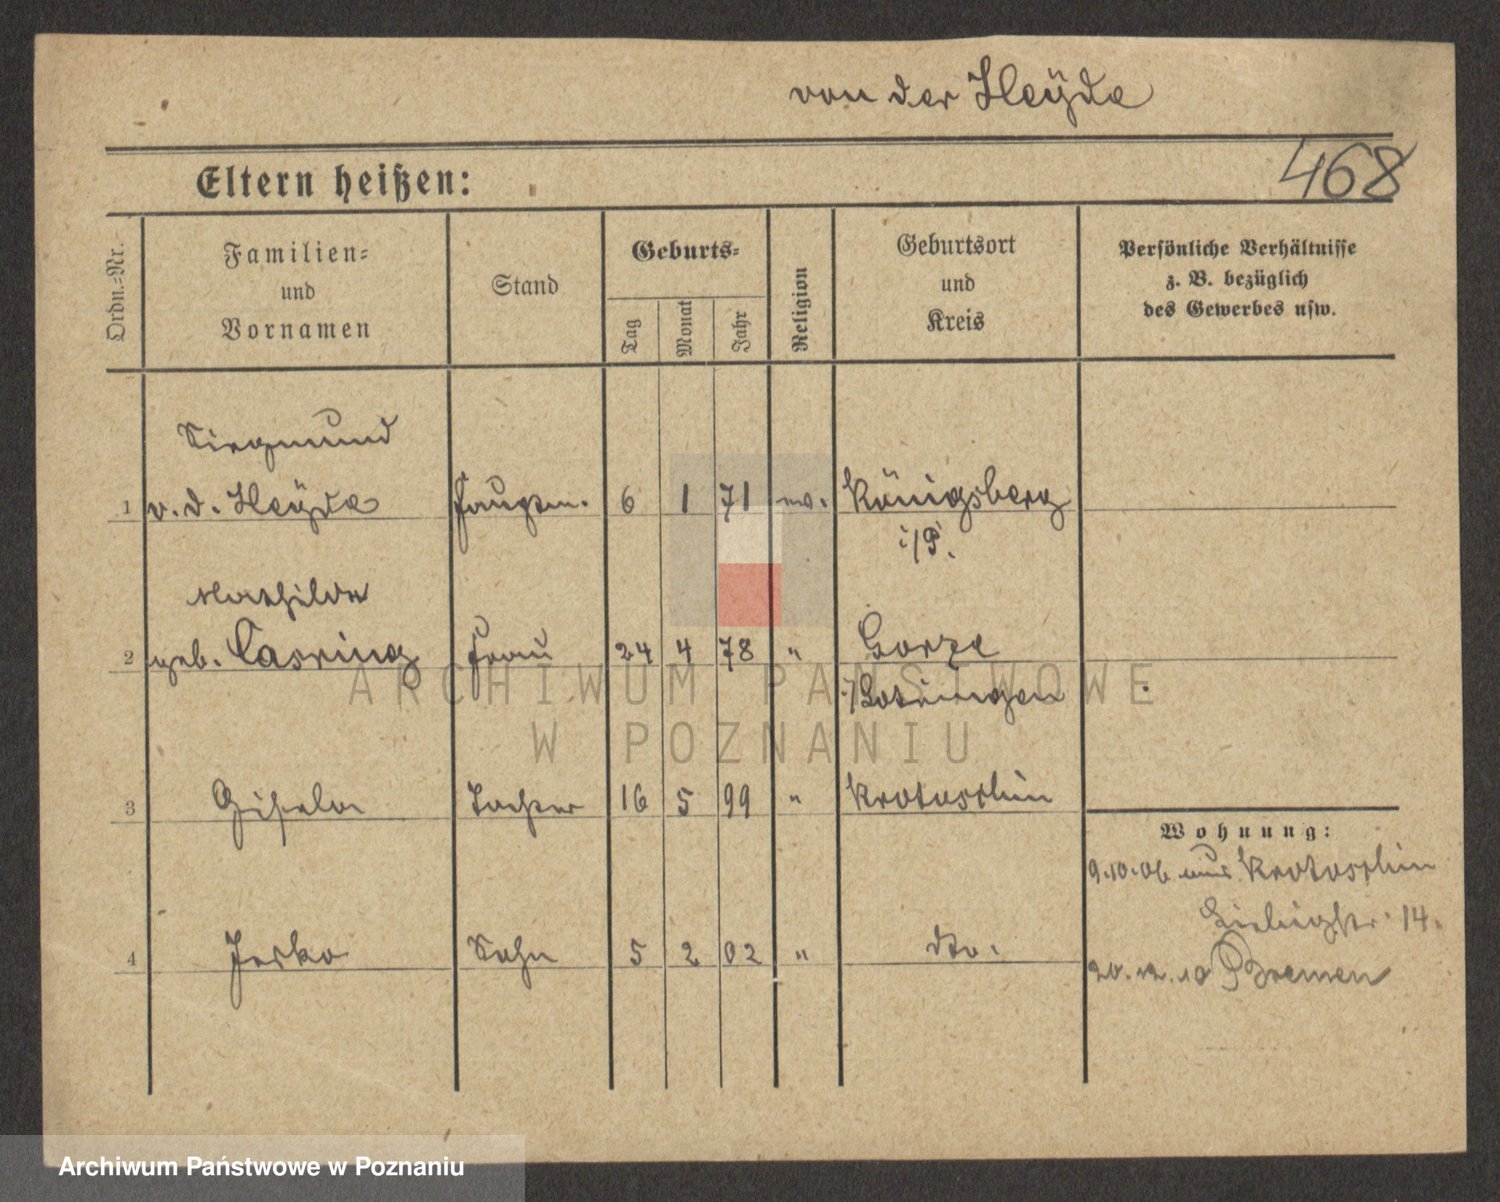 von der Heÿde
468
Eltern heißen:
Ordn.-Nr.
Familien-
und
Vornamen
Stand
Geburts-
Tag
Monat
Jahr
Religion
Geburtsort
und
Kreis
Persönliche Verhältnisse
z. B. bezüglich
des Gewerbes usw.
Siegmund
1 v. d. Heÿde Hauptm. 6 1 71 ev. Königsberg
i/P.
Mathilde
2 geb. Frau 24 4 78 " Gorze
i/Lotringen
3 Gisela Tochter 16 5 99 " Krotoschin
Wohnung:
9.10.06 aus Krotoschin
Liebigstr. 14.
4 Jesko Sohn 5 2 02 " dto.
20.12.10 Bremen
ARCHIWUM PAŃSTWOWE
W POZNANIU
Archiwum Państwowe w Poznaniu